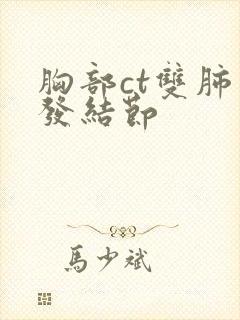 胸部ct雙肺
發結節
馬少斌